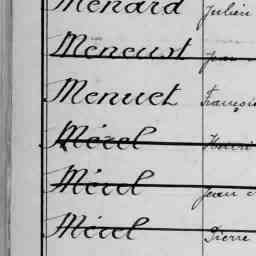 Menard Julien
Meneust Jean
Menuet François
Mérel Henri
Mérel Jean
Mérel Pierre